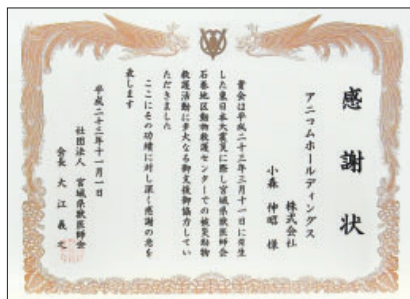 感謝状
アニコムホールディングス
株式会社
小森 伸昭 様
貴会は平成二十三年三月十一日に発生
した東日本大震災に際し宮城県獣医師会
石巻地区動物救護センターでの被災動物
救護活動に多大なる御支援御協力してい
ただきました
ここにその功績に対し深く感謝の意を
表します
平成二十三年十一月一日
社団法人 宮城県獣医師会
会長 大江 義之